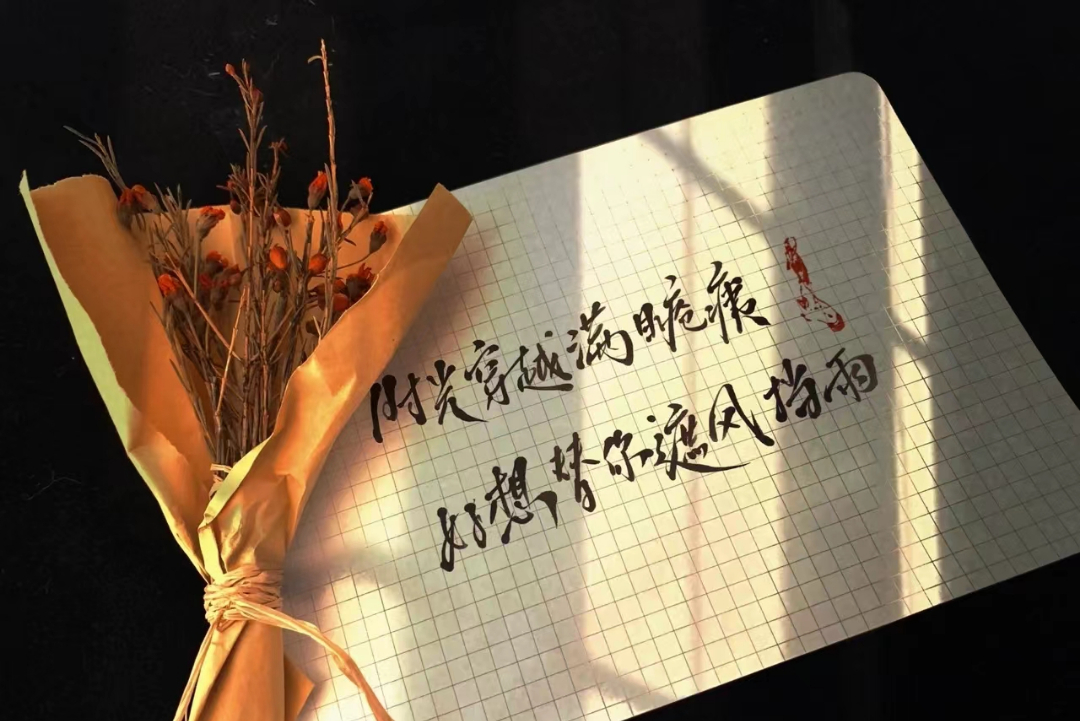 时光穿越满目疮痍
好想替你遮风挡雨